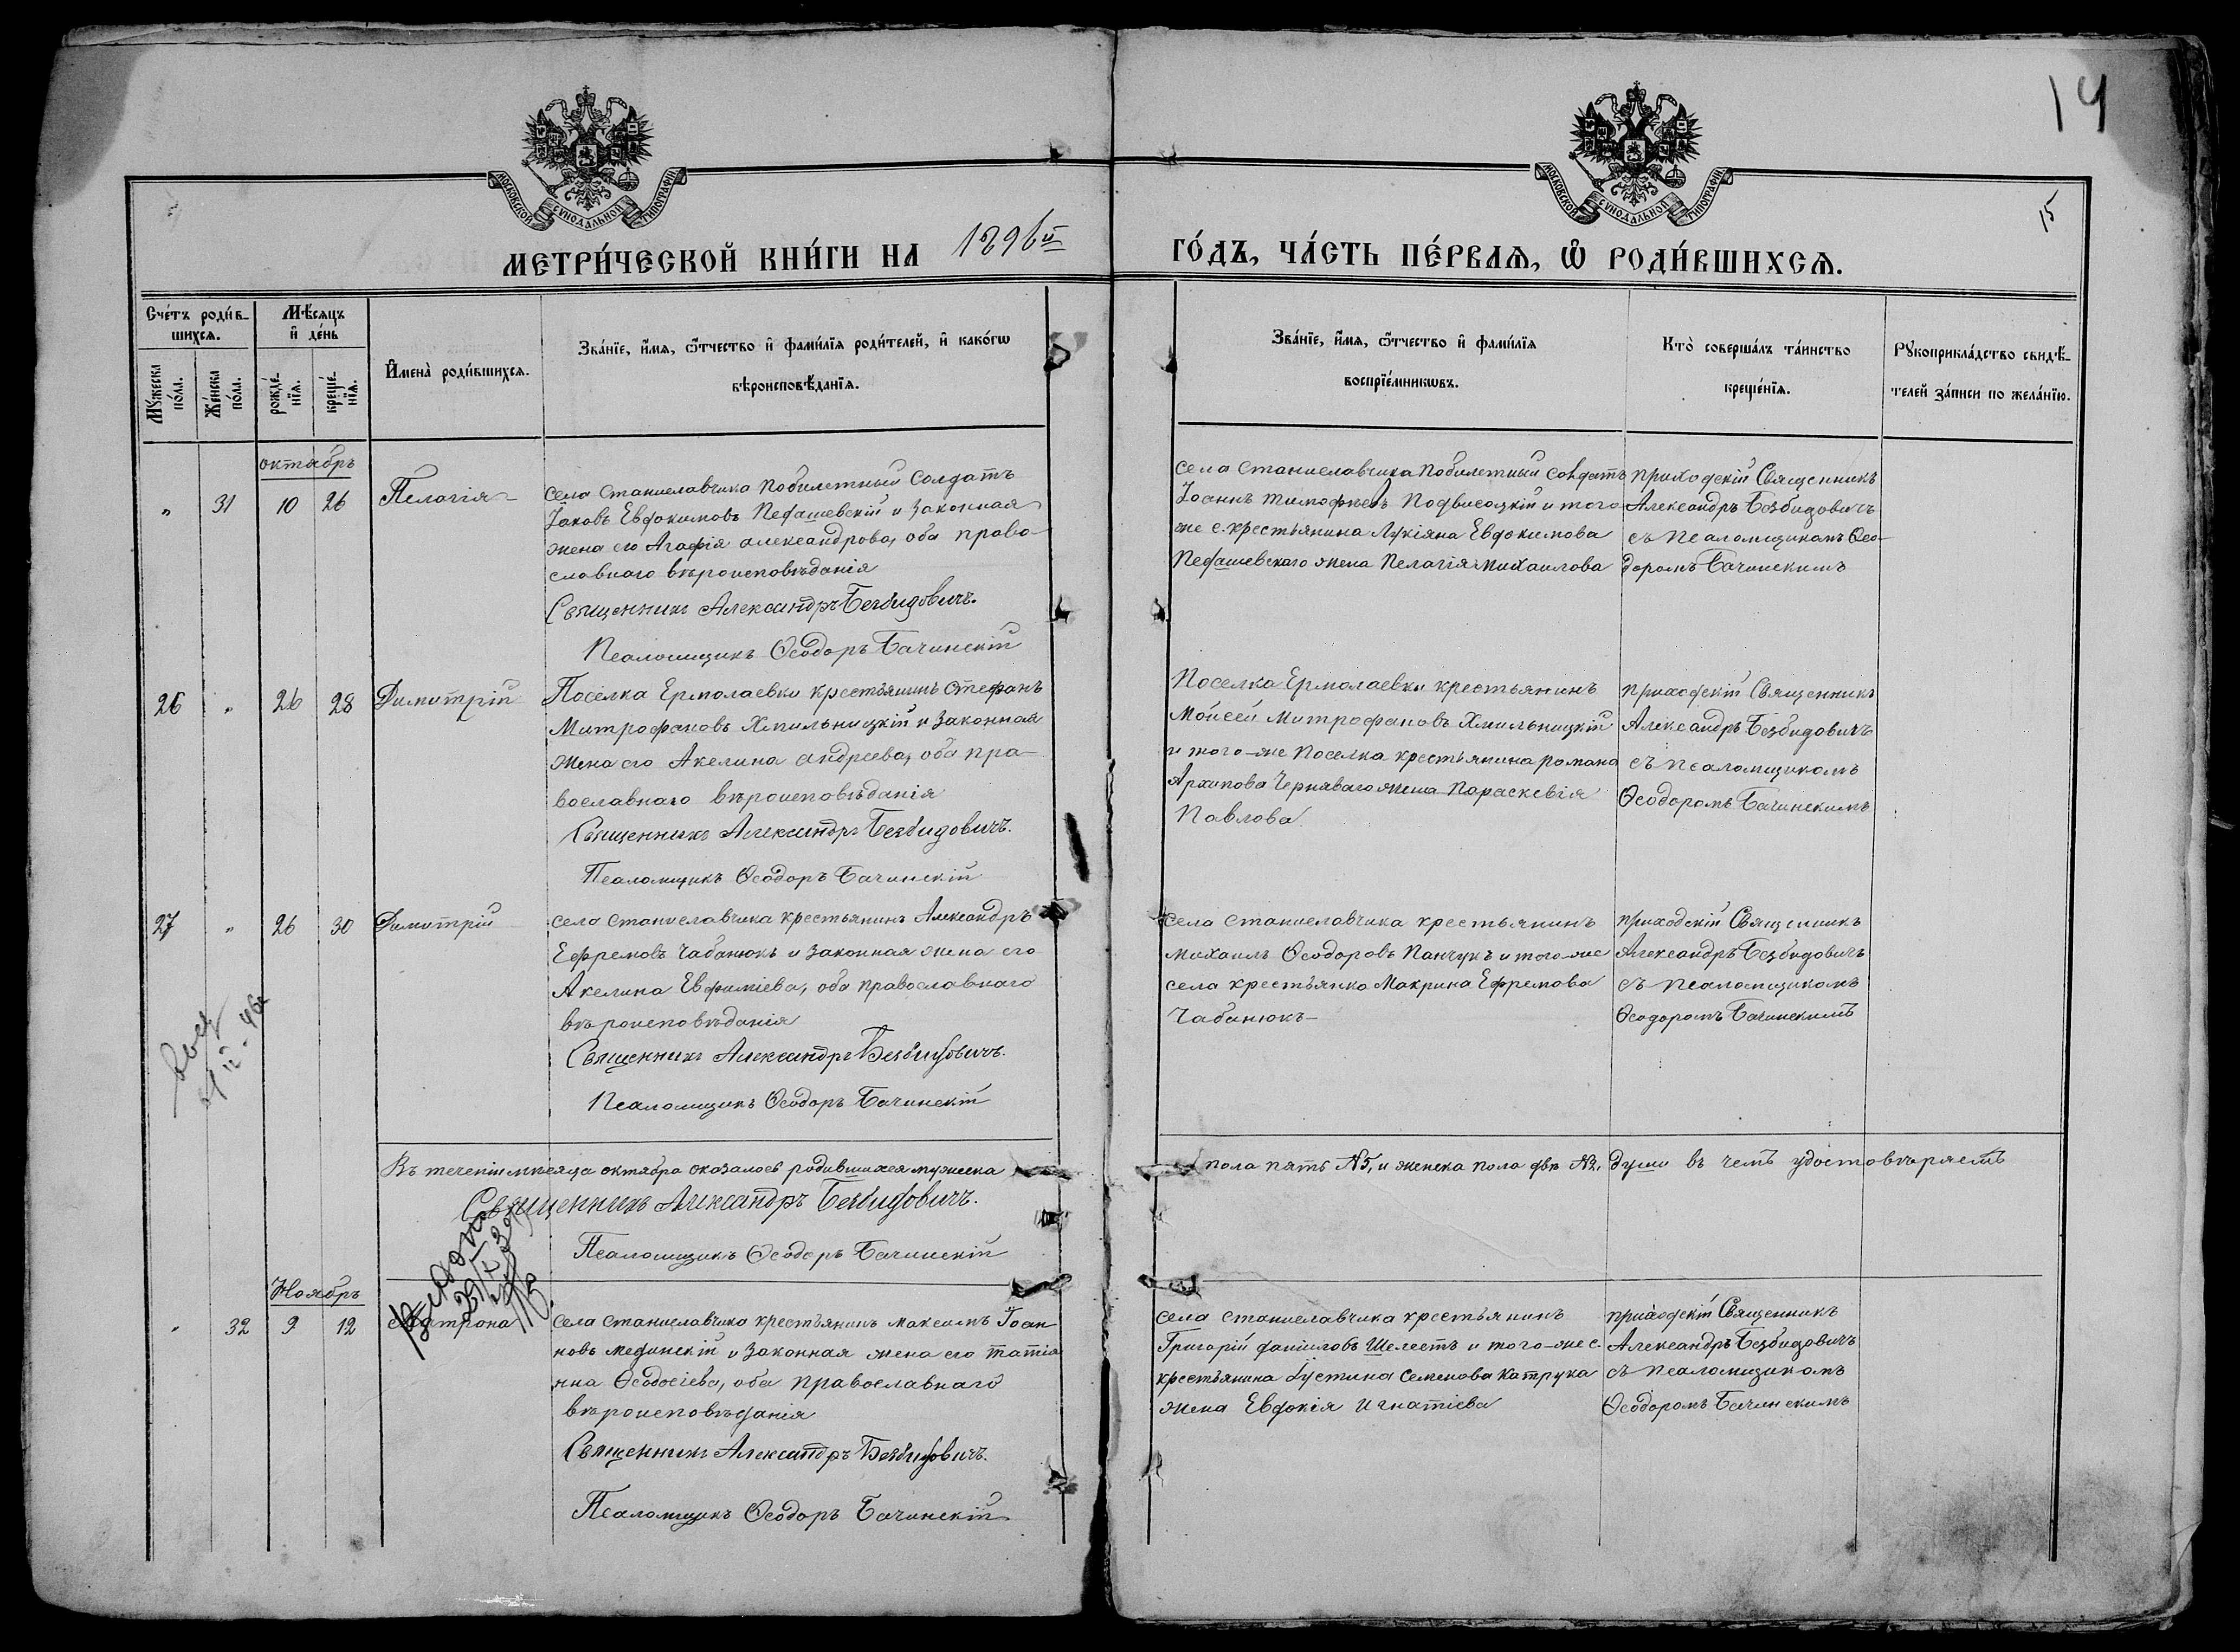 14
15
МОСКОВСКОЙ СѴНОДАЛЬНОЙ ТИПОГРАФІИ
МОСКОВСКОЙ СѴНОДАЛЬНОЙ ТИПОГРАФІИ
МЕТРИ́ЧЕСКОЙ КНИ́ГИ НА 1896й ГО́ДЪ, ЧА́СТЬ ПЕ́РВАѦ, Ѡ҆ РОДИ́ВШИХСѦ.
Сче́тъ роди́в-
шихсѧ.
Мѣ́сѧцъ
и҆ де́нь
Мꙋ́жеска по́ла.
Же́нска по́ла.
рожде́-
нїѧ.
креще́-
нїѧ.
И҆мена̀ роди́вшихсѧ.
Зва́нїе, и҆́мѧ, ѻ҆́тчество и҆ фами́лїѧ роди́телей, и҆ како́гѡ
вѣроисповѣ́данїѧ.
Зва́нїе, и҆́мѧ, ѻ҆́тчество и҆ фами́лїѧ
воспрїе́мникѡвъ.
Кто̀ соверша́лъ та́инство
креще́нїѧ.
Рꙋкоприкла́дство свидѣ́-
телей за́писи по жела́нїю.
октябрь
" 31 10 26 Пелагія
села Станиславчика побилетный солдатъ
Іаковъ Евдокимовъ Педашевскій и законная
жена его Агафія Александрова, оба право-
славнаго вѣроисповѣданія
Священникъ Александръ Безвидовичъ.
Псаломщикъ Ѳеодоръ Бачинскій
села Станиславчика побилетный солдатъ
Іоаннъ Тимофѣевъ Подвисоцкій и того
же с. крестьянина Лукіяна Евдокимова
Педашевскаго жена Пелагія Михаилова
приходскій Священникъ
Александръ Безвидовичъ
съ псаломщикомъ Ѳео-
доромъ Бачинскимъ
26 " 26 28 Димитрій
Поселка Ермолаевки крестьянинъ Стефанъ
Митрофановъ Хмильницкій и законная
жена его Акелина Андреева, оба пра-
вославнаго вѣроисповѣданія
Священникъ Александръ Безвидовичъ.
Псаломщикъ Ѳеодоръ Бачинскій
Поселка Ермолаевки крестьянинъ
Моисей Митрофановъ Хмильницкій
и того-же поселка крестьянина Романа
Архипова Чернявого жена Параскевія
Павлова
приходскій Священникъ
Александръ Безвидовичъ
съ псаломщикомъ
Ѳеодоромъ Бачинскимъ
27 " 26 30 Димитрій
села Станиславчика крестьянинъ Александръ
Ефремовъ Чабанюкъ и законная жена его
Акелина Евфиміева, оба православнаго
вѣроисповѣданія
Священникъ Александръ Безвидовичъ.
Псаломщикъ Ѳеодоръ Бачинскій
села Станиславчика крестьянинъ
Михаилъ Ѳеодоровъ Панчукъ и того-же
села крестьянка Макрина Ефремова
Чабанюкъ-
приходскій Священникъ
Александръ Безвидовичъ
съ псаломщикомъ
Ѳеодоромъ Бачинскимъ
Въ теченіи мѣсяца октября оказалось родившихся мужеска пола пять №5, и женска пола двѣ №2, души въ чемъ удостовѣряемъ
Священникъ Александръ Безвидовичъ.
Псаломщикъ Ѳеодоръ Бачинскій
Ноябрь
" 32 9 12 Матрона
села Станиславчика крестьянинъ Максимъ Іоан
новъ Мединскій и законная жена его Татіа
нна Ѳеодосіева, оба православнаго
вѣроисповѣданія
Священникъ Александръ Безвидовичъ.
Псаломщикъ Ѳеодоръ Бачинскій
села Станиславчика крестьянинъ
Григорій Даніиловъ Шелестъ и того-же с.
крестьянина Іустина Семенова Катрука
жена Евдокія Игнатіева
приходскій Священникъ
Александръ Безвидовичъ
съ псаломщикомъ
Ѳеодоромъ Бачинскимъ